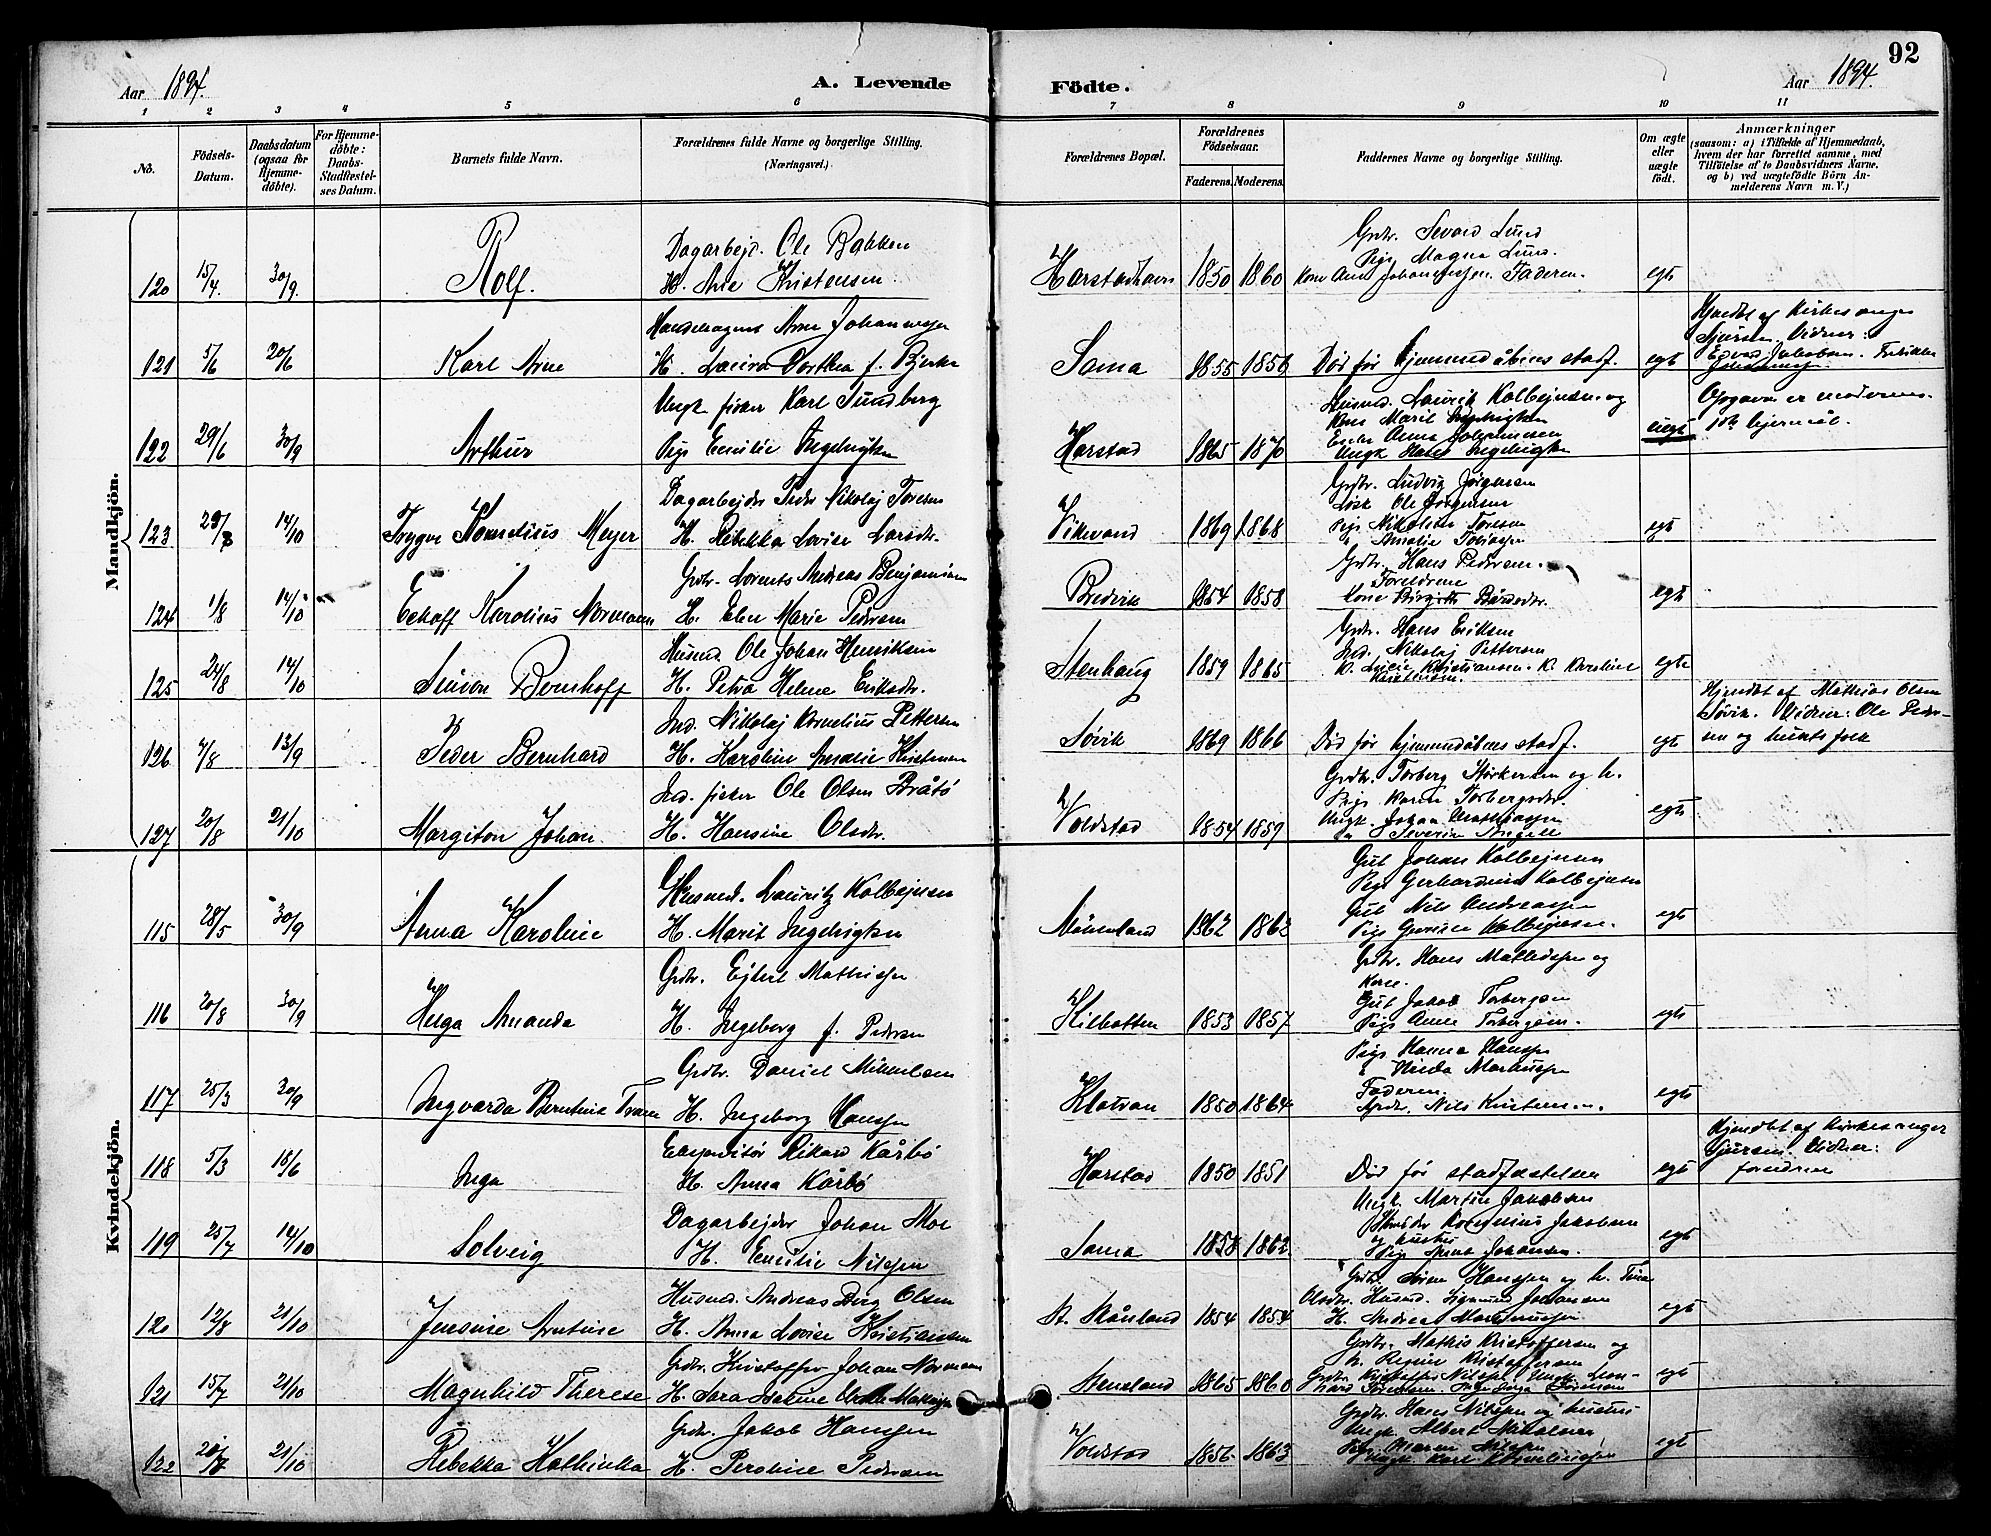 92
Aar 1894.
A. Levende Födte.
Aar 1894.
1 2 3 4 5 6 7 8 9 10 11
No.
Födsels-
Datum.
Daabsdatum
(ogsaa for
Hjemme-
döbte).
For Hjemme-
döbte:
Daabs-
Stadfæstel-
ses Datum.
Barnets fulde Navn.
Forældrenes fulde Navne og borgerlige Stilling.
(Næringsvei.)
Forældrenes Bopæl.
Forældrenes
Födselsaar.
Faderens. Moderens.
Faddernes Navne og borgerlige Stilling.
Om ægte
eller
uægte
födt.
Anmærkninger
(saasom: a) i Tilfælde af Hjemmedaab,
hvem der har forrettet samme, med
Tilföielse af to Daabsvidners Navne.
og b) ved uægtefödte Börn An-
melderens Navn m. V.)
Mandkjön.
120 15/4. 30/9. Rolf.
Dagarbejd. Ole Bakken
H. Kristensen
Harstadhavn 1850 1860
Grdr. Sevard Lund
Pige Magna Lund.
Kone Faderen.
egt
121 5/6 20/6 Karl Arne
Arne Johannesen
H. Laura Dorthea f. Bjerke
Sama 1855 1856
Död för hjemmedåbens stadf.
egt
Hjmdbt af Kirkesanger
Sjursen. Vidner:
122 29/6 30/9 Arthur
Ungk. fisker Karl Sundberg
Pige Emilie Ingebrigtsen
Harstad 1865 1870
Husmd. Laurits Kolbejnsen og
Kone Marit Ingebrigtsen
Ungk. Hans Ingebrigtsen
uegt
Opgaven er moderens.
123 14/10 Trygve Kornelius Meyer
Dagarbejder Peder Nikolaj Toresen
H. Rebekka Lovise Larsdtr.
Vikevand 1869 1868
Grdr. Ludvig Jörgensen
Lösk. Ole Jörgensen
Pige Nikoline Toresen
" Amalie Tobiassen
egt
124 1/8 14/10 Eckoff Karolius Normann
Grdbr. Lorents Andreas Benjaminsen
H. Elen Marie Pedersen
Bredvik 1854 1858
Grdbr. Hans Pedersen.
Foreldrene
Kone Birgitte Bårdsdtr.
egt
125 24/8 14/10 Simon Bernhoff
Husmd. Ole Johan Henriksen
H. Petra Helene Eriksdtr.
Stenhaug 1859 1865
Grdr. Hans Eriksen
Ind. Nikolaj Pettersen
K. Lucie Kristiansen. K. Karoline
Kristensen.
egte
126 7/8 13/9 Peder Bernhard
Ind. Nikolaj Kornelius Pettersen
H. Karoline Amalie Kristensen
Sövik 1869 1866
Död för hjemmedåbens stadf.
egt
Hjmdbt af Mathias Olsen
Sövik. Vidner: Ole Peder-
sen og husets folk
127 20/8 21/10 Margiton Johan.
Ind. fisker Ole Olsen Bråtö
H. Hansine Olsdtr.
Voldstad 1854 1859
Grdbr. Torberg Störkersen og h.
Pige Karen Torbergsdtr.
Ungk. Johan Mathiassen
" Severin
egt
Kvindekjön.
115 28/5 30/9 Anna Karoline
Husmd. Lauritz Kolbejnsen
H. Marit Ingebrigtsen
1862 1862
Gut Johan Kolbejnsen
Pige Gerhardine Kolbejnsen
Gut Nils Andreassen
Pige Kolbejnsen.
egt
116 20/8 30/9 Helga Amanda
Grdbr. Ejlert Mathissen
H. Ingeborg f. Pedersen
Kilbotten 1853 1857
Grdbr. Hans Mathissen og
Kone.
Gut Jakob Torbergsen
Pige Anne Torbergsen.
egt
117 25/3 30/9 Ingvarda Berntine
Grdbr. Daniel Mikkelsen
H. Ingeborg Hansen
Kløtran 1850 1864
Pige Hanna Hansen
" Hilda Markussen
Faderen.
Grdbr. Nils Kristensen.
egt
118 5/3 18/6 Inga
Expeditör Rikard Kårbö
H. Anna Kårbö
Harstad 1850 1851
Död för stadfæstelsen
egt
Hjemdbt af Kirkesanger
Sjursen. Vidner:
foreldrene
119 25/7 14/10 Solveig
Dagarbejder Johan Moe
H. Emilie Nilssen
Sama 1858 1862
Ungk. Martin Jakobsen
Kornelius Jakobsen
og hustru
Pige Anna Johansen.
egt
120 12/8 21/10 Jensine Arntine
Husmd. Andreas Berg Olsen
H. Anna Lovise Kristiansen
St. Skånland 1854 1854
Grdbr. Sören Hanssen og h. Trine
Olsdtr. Husmd. Sigmund Johansen
H. Andrea
egt
121 15/7 21/10 Magnhild Therese
Grdbr. Kristoffer Johan Normann
H. Sara
Steneland 1865 1860
Grdbr. Mathis Kristoffersen og
h. Regine Kristoffersen
egt
122 21/10 Rebekka Kathinka
Grdbr. Jakob Hanssen
H. Peroline Pedersen
Voldstad 1856 1863
Grdbr. Hans Nilssen og hustru
Ungk. Albert Nikolaisen
Pige Maren Nilssen
Ungk. Karl Korneliussen
egt